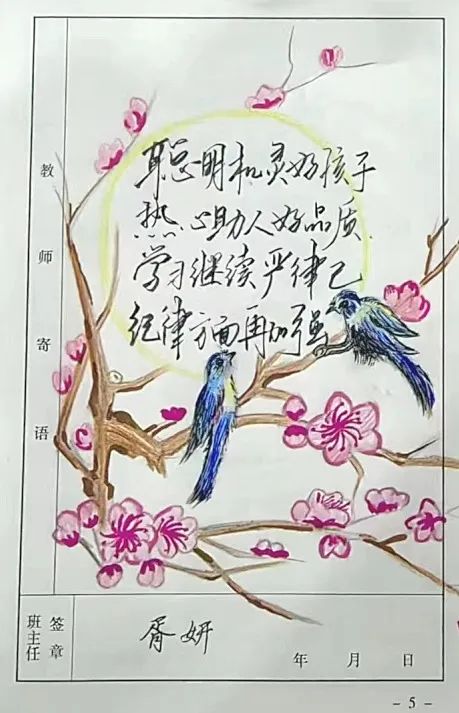 教师寄语
聪明机灵好孩子
热心助人好品质
学习继续严律己
纪律方面再加强
班主任
签章
胥妍
年 月 日
- 5 -